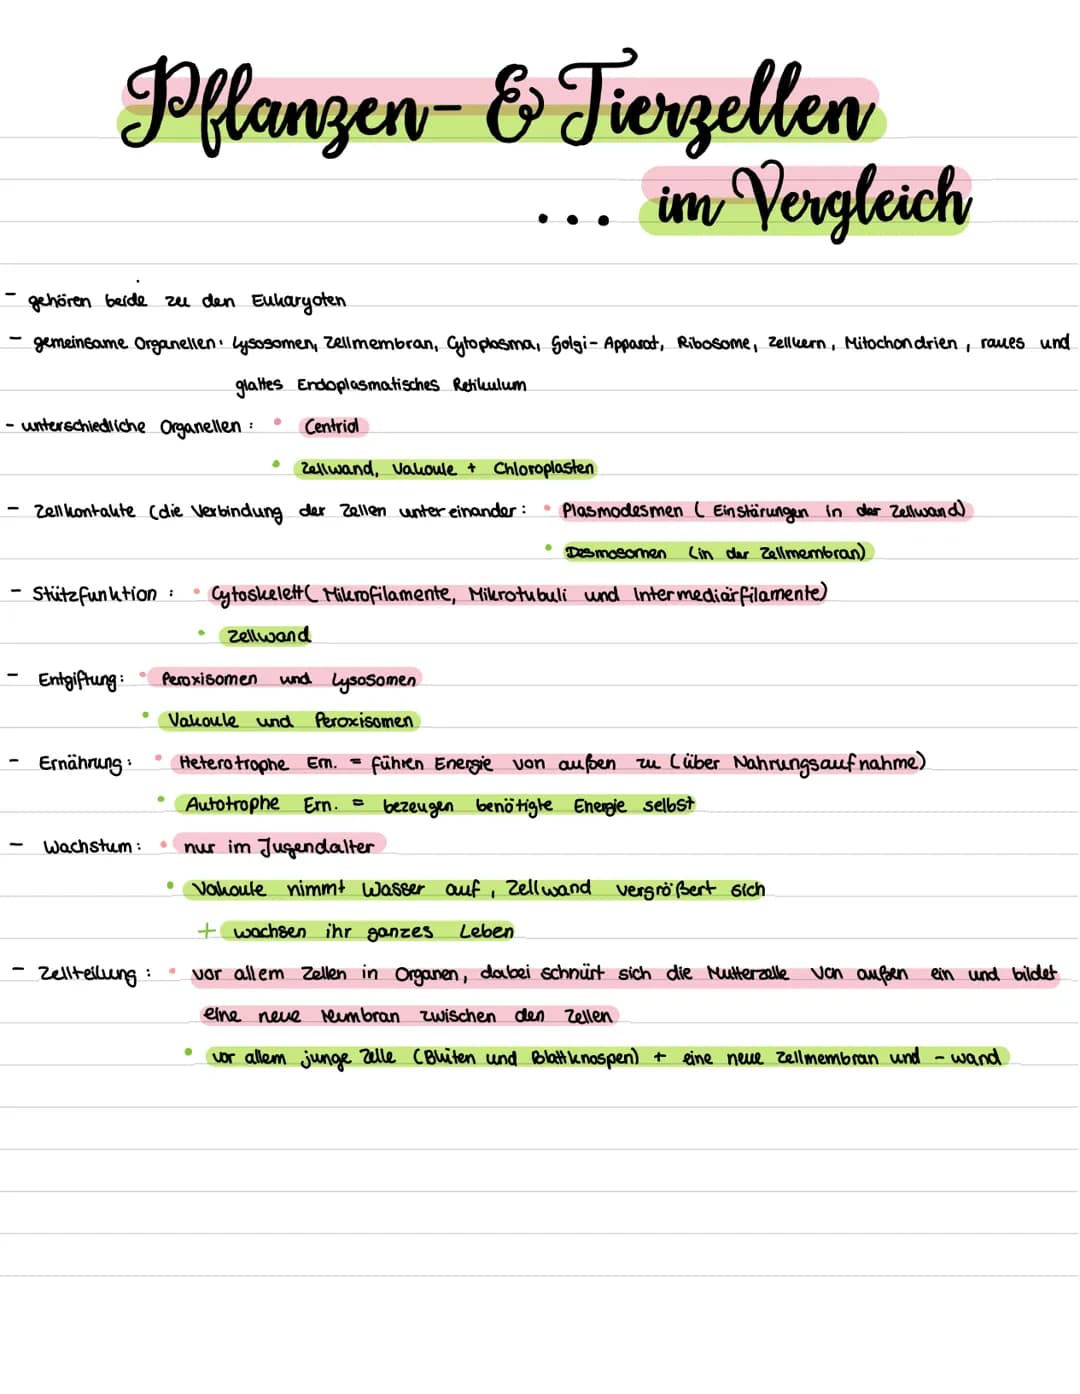 Pflanzen- & Tierzellen
... im Vergleich
- gehören beide zu den Eukaryoten
- gemeinsame Organellen: Lysosomen, Zellmembran, Cytoplasma, Golgi-Apparat, Ribosome, Zellkern, Mitochondrien, raues und
glattes Endoplasmatisches Retikulum
- unterschiedliche Organellen: • Centriol
• Zellwand, Vakoule + Chloroplasten
- Zellkontakte (die Verbindung der Zellen untereinander: • Plasmodesmen ( Einstärungen in der Zellwand)
• Desmosomen (in der Zellmembran)
- Stützfunktion: • Cytoskelett( Mikrofilamente, Mikrotubuli und Intermediärfilamente)
• Zellwand
- Entgiftung: • Peroxisomen und Lysosomen
• Vakoule und Peroxisomen
- Ernährung: • Heterotrophe Ern. = führen Energie von außen zu (über Nahrungsaufnahme)
• Autotrophe Ern. = bezeugen benötigte Energie selbst
- Wachstum: • nur im Jugendalter
• Vakoule nimmt Wasser auf, Zellwand vergrößert sich
+ wachsen ihr ganzes Leben
- Zellteilung: • vor allem Zellen in Organen, dabei schnürt sich die Mutterzelle von außen ein und bildet
eine neue Membran zwischen den Zellen
• vor allem junge Zelle (Blüten und Blattknospen) + eine neue Zellmembran und -wand